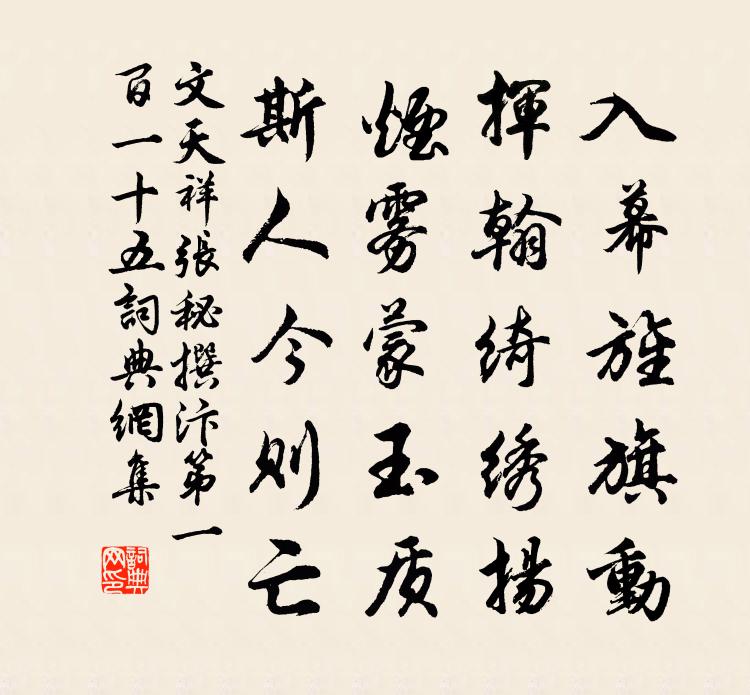 入幕旌旗動
揮翰綺绣揚
煙雾蒙玉质
斯人今則亡
文天祥張秘撰汴第一
百一十五詞典網集
詞典
网印